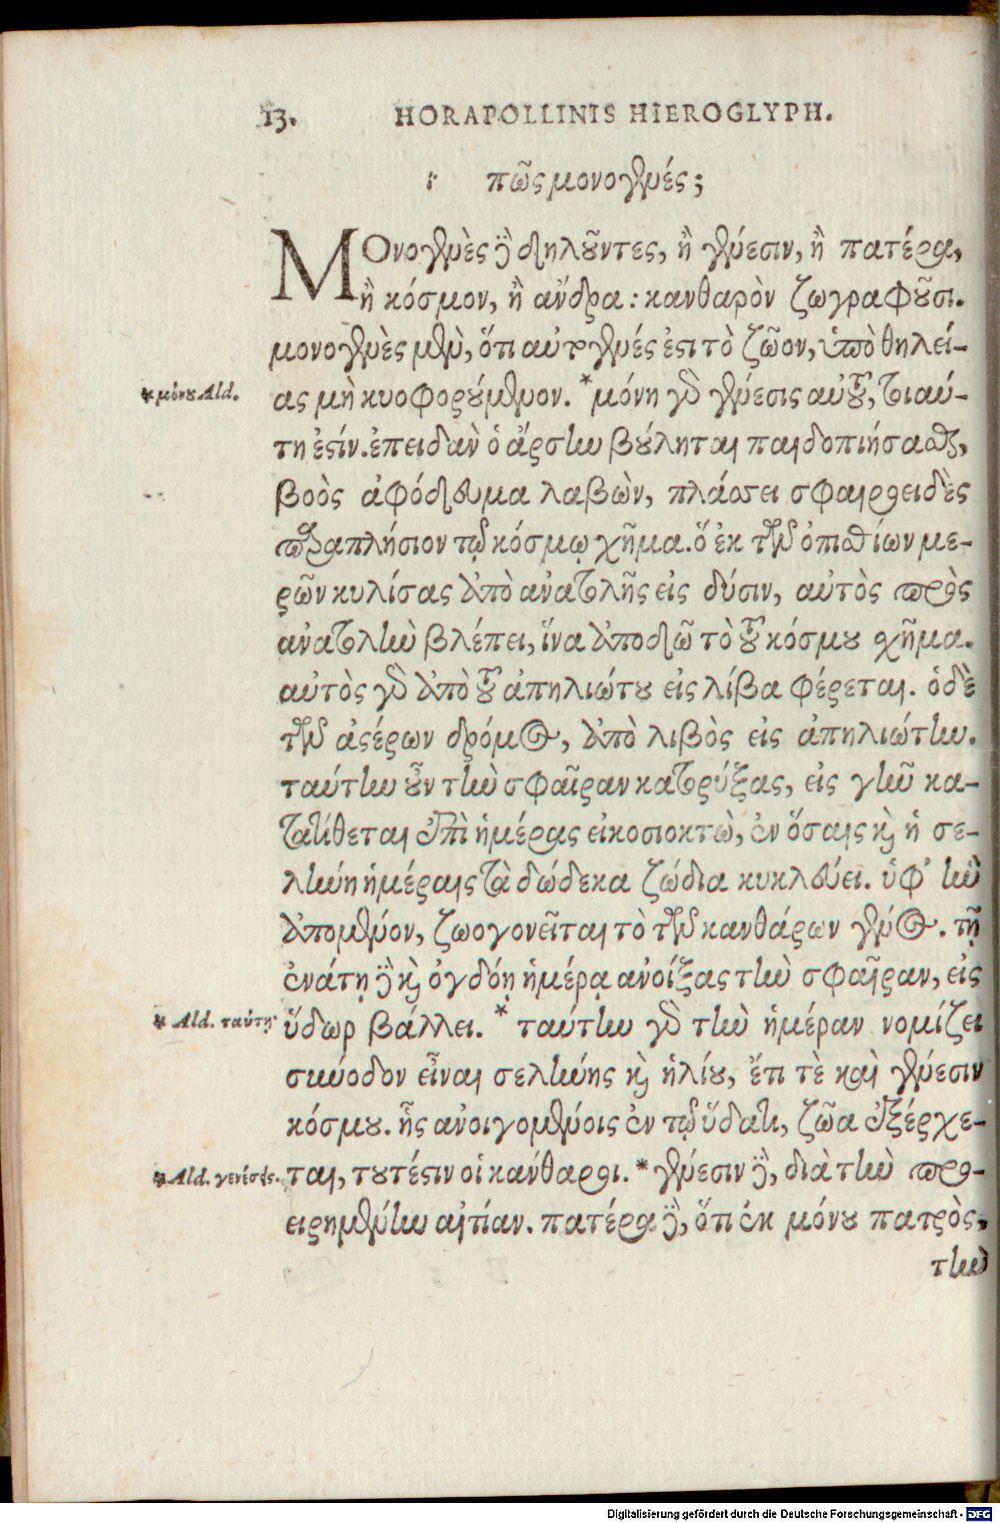 13.
HORAPOLLINIS HIEROGLYPH.
ι πῶς μονογενές;
ΜΟνογενὲς δὲ δηλοῦντες, ἢ γένεσιν, ἢ πατέρα,
ἢ κόσμον, ἢ ἄνδρα: κανθαρὸν ζωγραφοῦσι.
μονογενὲς μὲν, ὅτι αὐτογενές ἐστι τὸ ζῶον, ὑπὸ θηλεί-
ας μὴ κυοφορούμενον. *μόνη γὰρ γένεσις αὐτοῦ, τοιαύ-
*μόνου Ald.
τη ἐστίν. ἐπειδὰν ὁ ἄρσην βούληται παιδοποιήσασθαι,
βοὸς ἀφόδευμα λαβὼν, πλάσσει σφαιροειδὲς
παραπλήσιον τῷ κόσμῳ σχῆμα. ὃ ἐκ τῶν ὀπισθίων με-
ρῶν κυλίσας ἀπὸ ἀνατολῆς εἰς δύσιν, αὐτὸς πρὸς
ἀνατολὴν βλέπει, ἵνα ἀποδῶ τὸ τοῦ κόσμου σχῆμα.
αὐτὸς γὰρ ἀπὸ τοῦ ἀπηλιώτου εἰς λίβα φέρεται. ὁ δὲ
τῶν ἀστέρων δρόμος, ἀπὸ λιβὸς εἰς ἀπηλιώτην.
ταύτην οὖν τὴν σφαῖραν κατορύξας, εἰς γῆν κα-
τατίθεται ἐπὶ ἡμέρας εἰκοσιοκτὼ, ἐν ὅσαις καὶ ἡ σε-
λήνη ἡμέραις τὰ δώδεκα ζώδια κυκλεύει. ὑφ' ἣν
ἀπομένον, ζωογονεῖται τὸ τῶν κανθάρων γένος. τῇ
ἐνάτῃ δὲ καὶ ὀγδόῃ ἡμέρᾳ ἀνοίξας τὴν σφαῖραν, εἰς
ὕδωρ βάλλει. * ταύτην γὰρ τὴν ἡμέραν νομίζει
* Ald. ταύτῃ
σύνοδον εἶναι σελήνης καὶ ἡλίου, ἔτι τὲ καὶ γένεσιν
κόσμου. ἧς ἀνοιγομένοις ἐν τῷ ὕδατι, ζῶα ἐξέρχε-
ται, τουτέστιν οἱ κάνθαροι. *γένεσιν δὲ, διὰ τὴν προ-
*Ald. γενέσεως.
ειρημένην αἰτίαν. πατέρα δὲ, ὅτι ἐκ μόνου πατρὸς,
τὴν
Digitalisierung gefördert durch die Deutsche Forschungsgemeinschaft - DFG